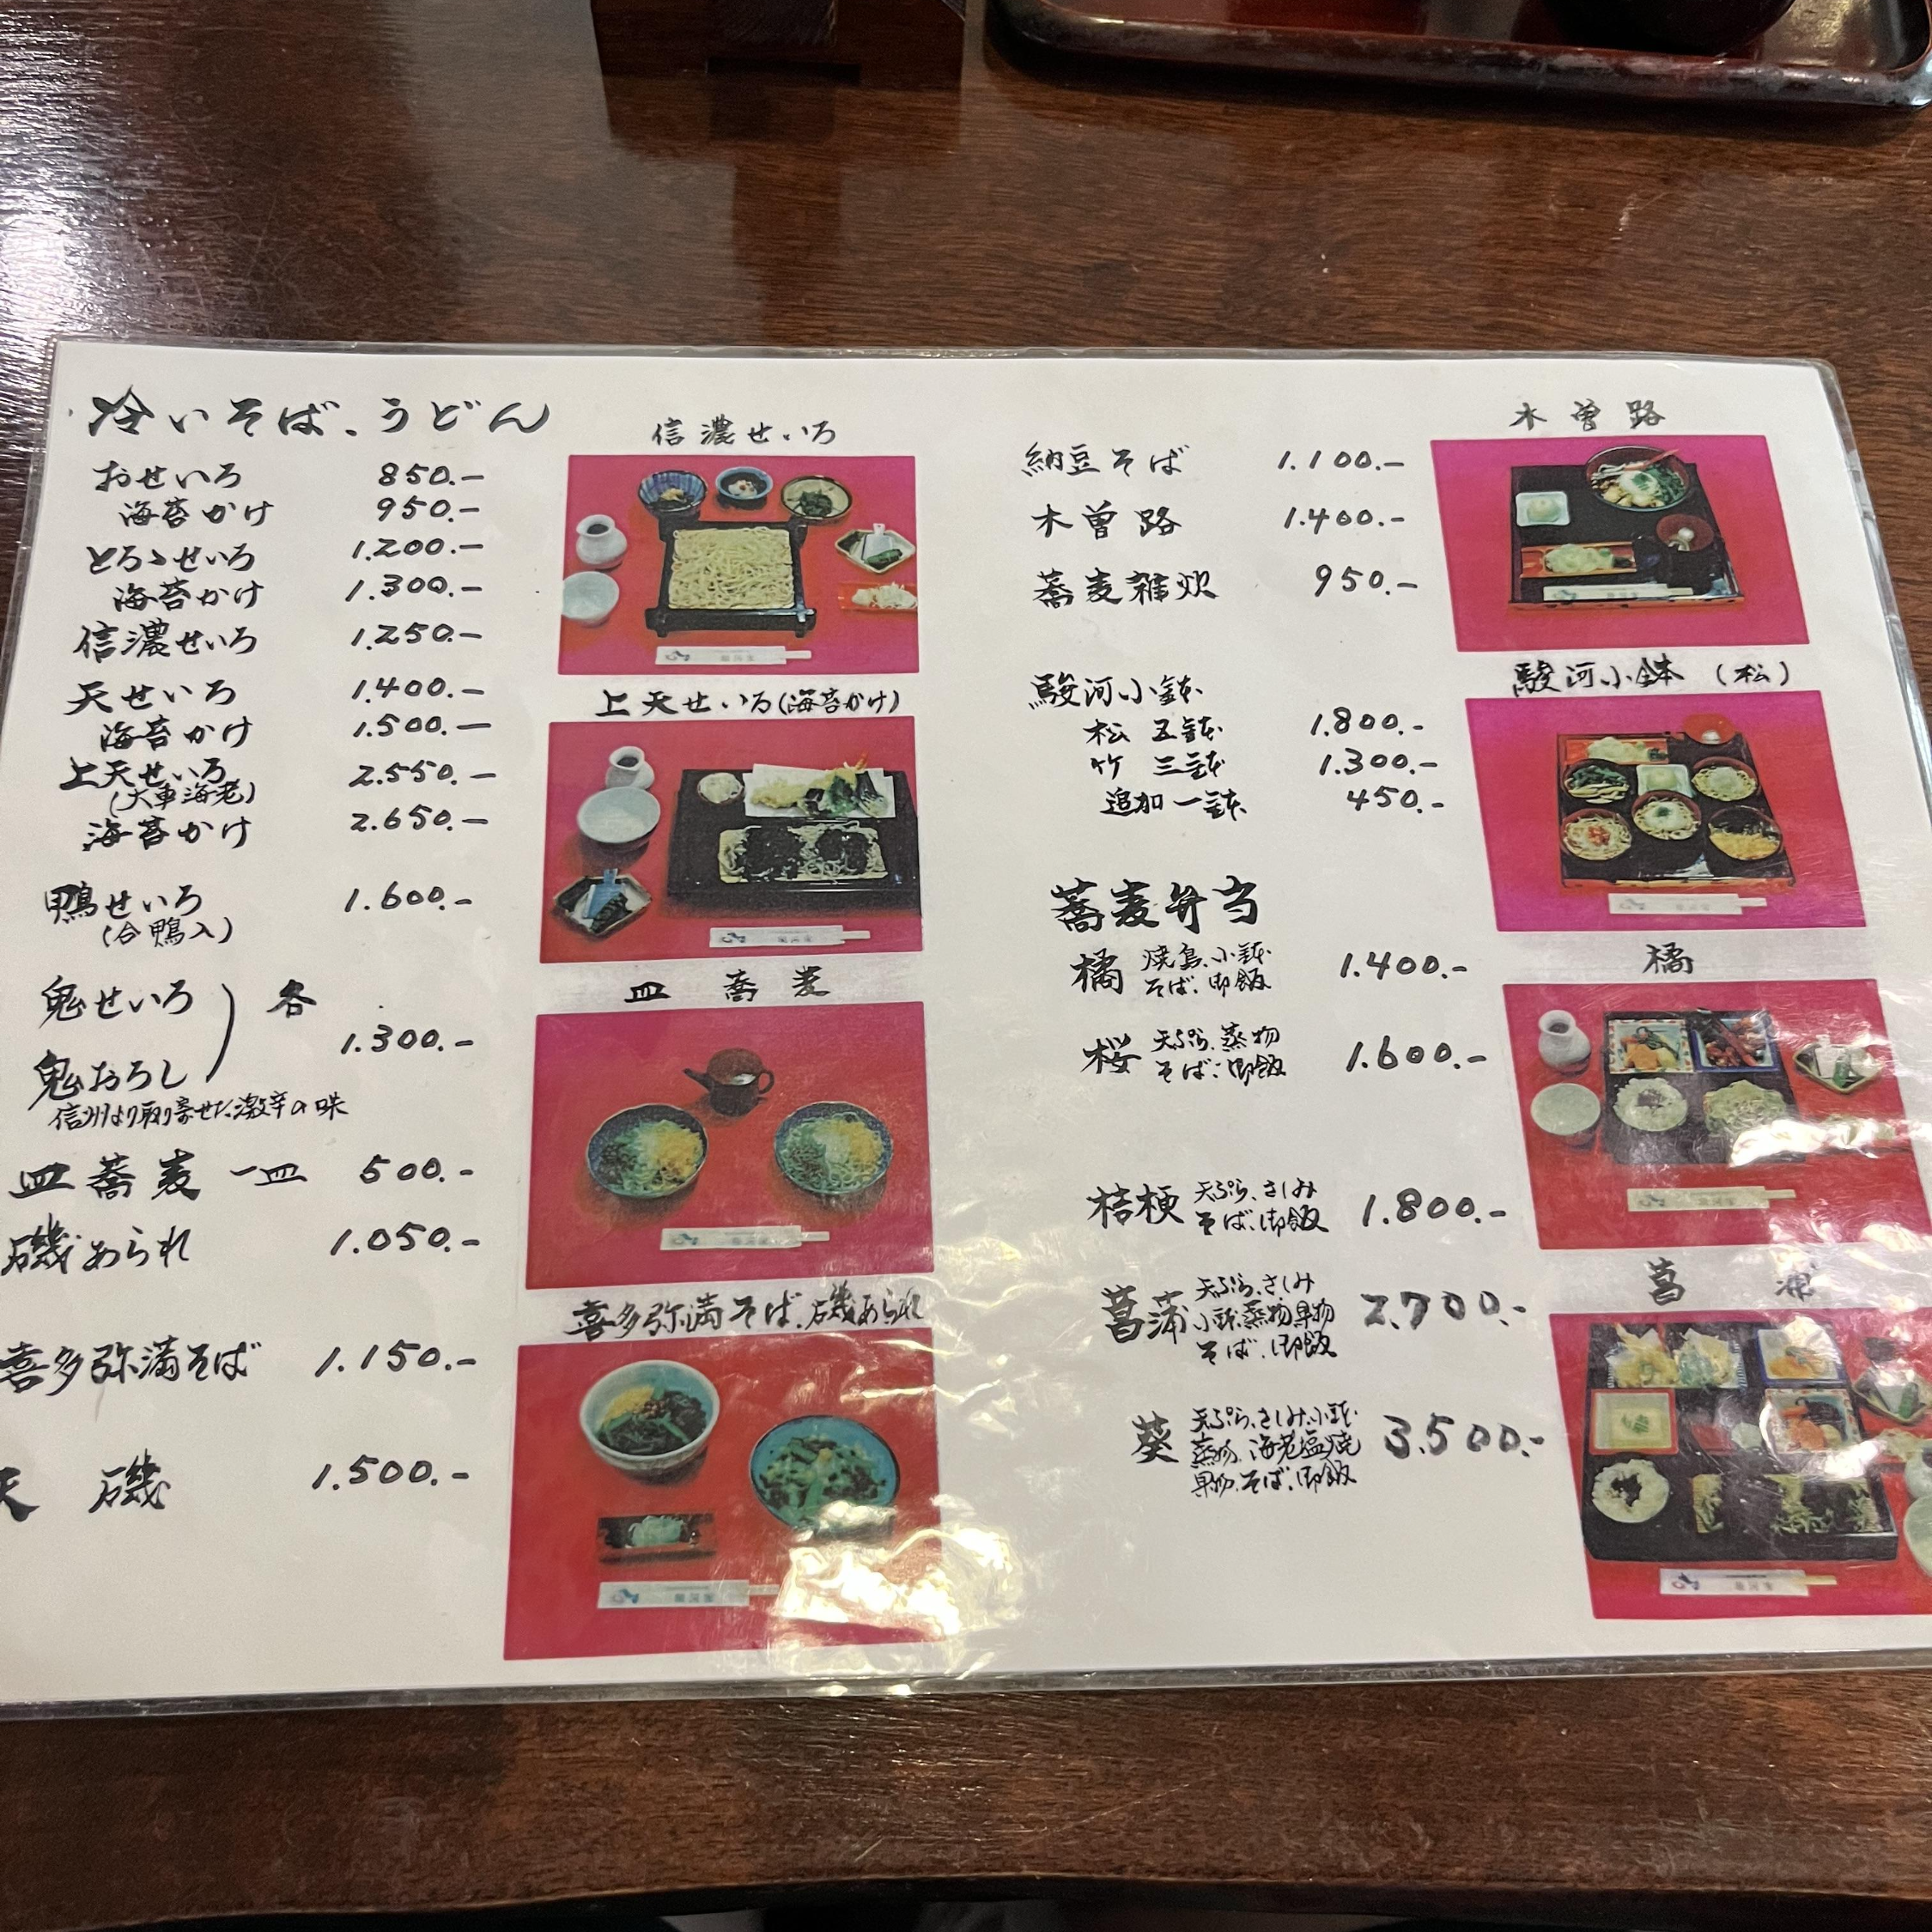 冷いそば、うどん
おせいろ 850.-
海苔かけ 950.-
とろゝせいろ 1.200.-
海苔かけ 1.300.-
信濃せいろ 1.250.-
天せいろ 1.400.-
海苔かけ 1.500.-
上天せいろ 2.550.-
(大車海老)
海苔かけ 2.650.-
鴨せいろ 1.600.-
(合鴨入)
鬼せいろ 各
鬼おろし 1.300.-
信州より取り寄せた激辛の味
皿蕎麦 一皿 500.-
磯あられ 1.050.-
喜多弥満そば 1.150.-
天磯 1.500.-
信濃せいろ
上天せいろ(海苔かけ)
皿蕎麦
喜多弥満そば、磯あられ
納豆そば 1.100.-
木曽路 1.400.-
蕎麦雑炊 950.-
駿河小鉢
松 五鉢 1.800.-
竹 三鉢 1.300.-
追加一鉢 450.-
蕎麦弁当
橘 焼鳥、小鉢 1.400.-
そば、御飯
桜 天ぷら、蒸物 1.600.-
そば、御飯
桔梗 天ぷら、さしみ 1.800.-
そば、御飯
菖蒲 天ぷら、さしみ 2.700.-
小鉢、蒸物、果物
そば、御飯
葵 天ぷら、さしみ、小鉢 3.500.-
蒸物、海老塩焼
果物、そば、御飯
木曽路
駿河小鉢 (松)
橘
菖蒲